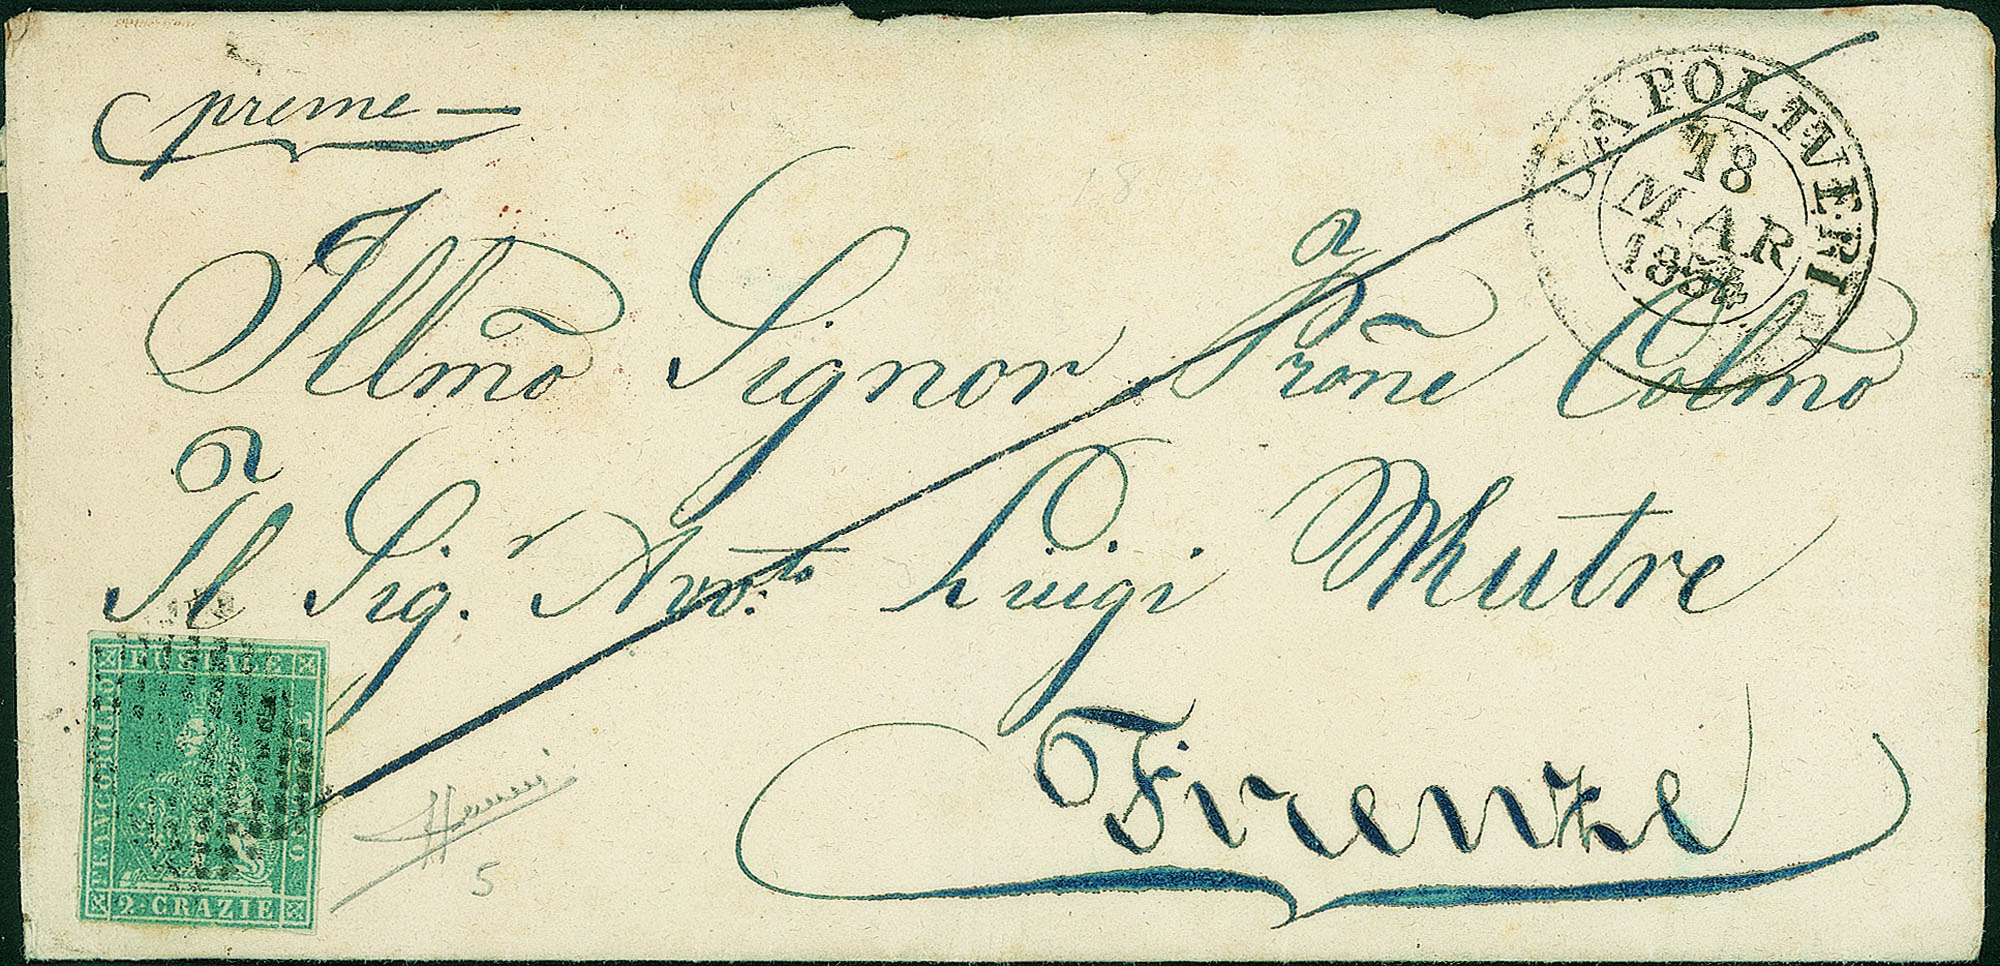 preme —
LAPOLIVERI
18
MAR
1854
18
Illmõ Signor Prõne Colmõ
Il Sig.r Avv.to Luigi Mutre
Firenze
FRANCOBOLLO
POSTALE
2 GRAZIE
5